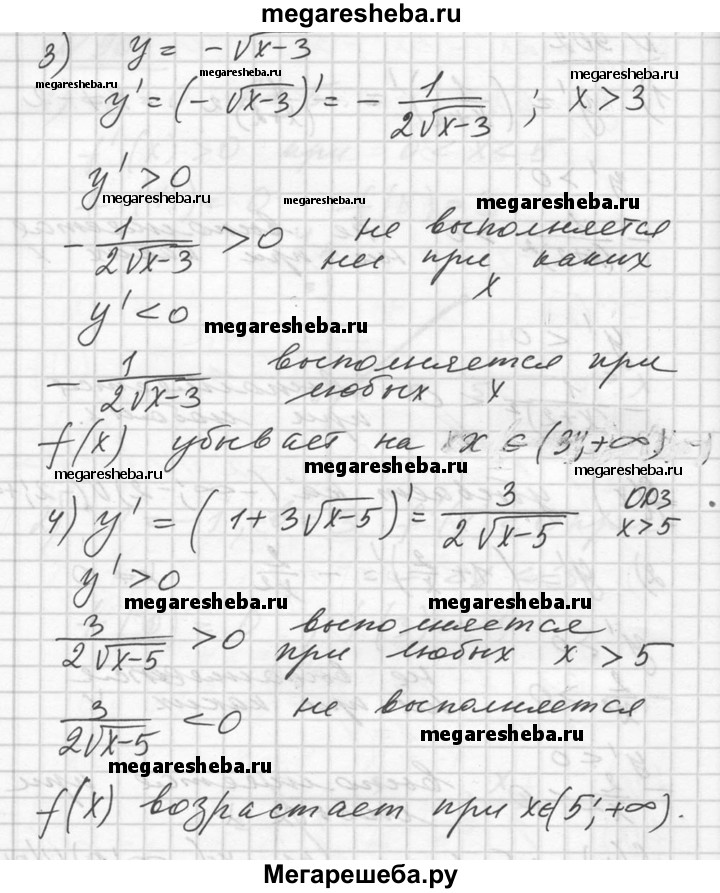 megaresheba.ru
3) y = -√x-3
megaresheba.ru megaresheba.ru megaresheba.ru
y' = (-√x-3)' = - 1/2√x-3 ; x > 3
y' > 0
megaresheba.ru megaresheba.ru megaresheba.ru
- 1/2√x-3 > 0 не выполняется
ни при каких
x
y' < 0
megaresheba.ru
- 1/2√x-3 выполняется при
любых x
f(x) убывает на x ∈ (3; +∞)
megaresheba.ru megaresheba.ru megaresheba.ru
4) y' = (1+3√x-5)' = 3/2√x-5 ООЗ
x>5
y' > 0
megaresheba.ru megaresheba.ru
3/2√x-5 > 0 выполняется
при любых x > 5
3/2√x-5 < 0 не выполняется
megaresheba.ru
megaresheba.ru
f(x) возрастает при x∈(5; +∞).
Мегарешеба.ру